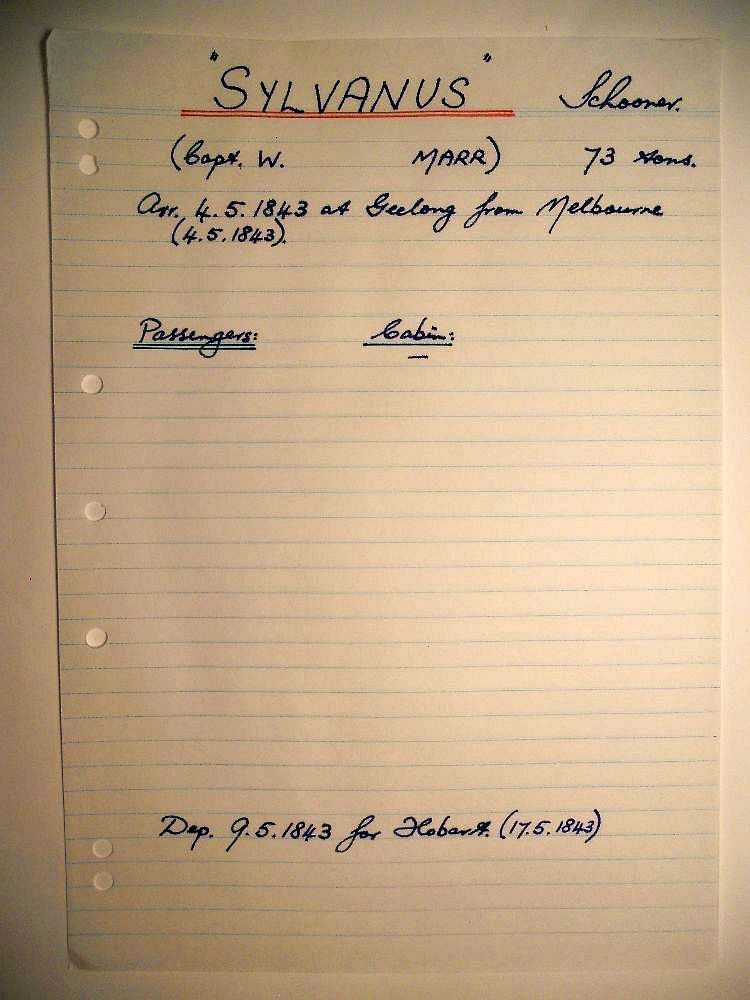 "SYLVANUS" Schooner.
(Capt. W. MARR) 73 tons.
Arr. 4.5.1843 at Geelong from Melbourne
(4.5.1843).
Passengers: Cabin:
—
Dep. 9.5.1843 for Hobart. (17.5.1843)